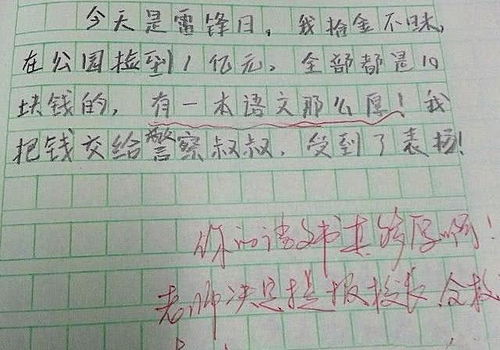 今天是雷锋日，我拾金不昧，
在公园捡到1亿元，全部都是10
块钱的，有一本语文那么厚！我
把钱交给警察叔叔，受到了表扬！
你的语文书真够厚啊！
老师决定提报校长，全校